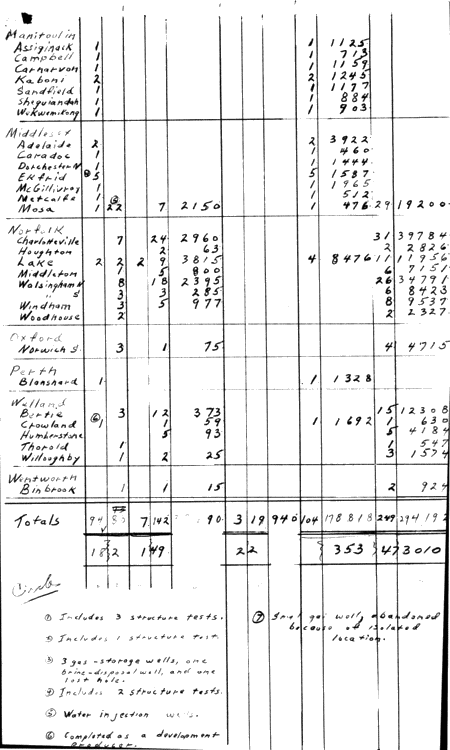 Manitoulin
Assiginack 1 1 1125
Campbell 1 1 713
Carnarvon 1 1 1159
Kaboni 2 2 1245
Sandfield 1 1 1177
Sheguiandah 1 1 884
Wikwemikong 1 1 903
Middlesex
Adelaide 2 2 3922
Caradoc 1 1 460
Dorchester N 1 1 1444
Ekfrid 5 5 1587
McGillivray 1 1 1965
Metcalfe 1 1 512
Mosa 1 22 7 2150 1 476 29 19200
Norfolk
Charlotteville 7 24 2960 31 39784
Houghton 2 63 2 2826
Lake 2 2 2 9 3815 4 8476 11 11956
Middleton 1 5 800 6 7151
Walsingham N 8 18 2395 26 34791
" S 3 3 285 6 8423
Windham 3 5 977 8 9537
Woodhouse 2 2 2327
Oxford
Norwich S. 3 1 75 4 4715
Perth
Blanshard 1 1 1328
Welland
Bertie 3 12 373 15 12308
Crowland ⑥ 1 1 59 1 1692 1 630
Humberstone 5 93 5 4184
Thorold 1 1 547
Willoughby 1 2 25 3 1574
Wentworth
Binbrook 1 1 15 2 924
Totals 94 7 142 90 3 19 940 104 178818 249 294192
182 149 22 353 473010
① Includes 3 structure tests.
② Includes 1 structure test.
③ 3 gas-storage wells, one
brine-disposal well, and one
lost hole.
④ Includes 2 structure tests.
⑤ Water injection wells.
⑥ Completed as a development
producer.
⑦ gas wells abandoned
because of isolated
location.